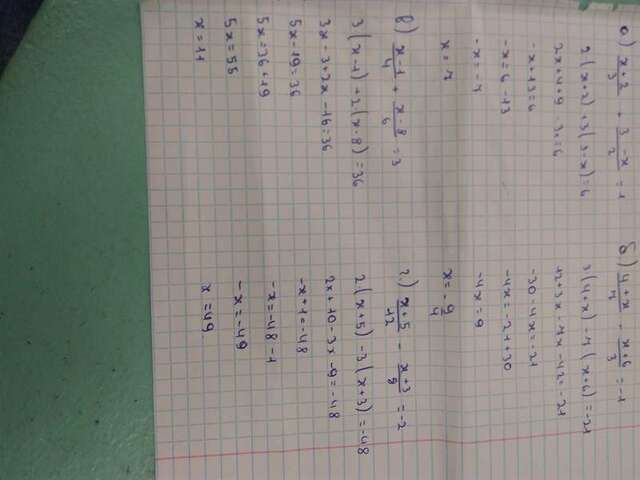 а) x+2/3 + 3-x/2 = 1
2(x+2)+3(3-x)=6
2x+4+9-3x=6
-x+13=6
-x=6-13
-x=-7
x=7
б) 4+x/7 - x+6/3 = -1
3(4+x)-7(x+6)=-21
12+3x-7x-42=-21
-30-4x=-21
-4x=-21+30
-4x=9
x=-9/4
в) x-1/4 + x-8/6 = 3
3(x-1)+2(x-8)=36
3x-3+2x-16=36
5x-19=36
5x=36+19
5x=55
x=11
г) x+5/12 - x+3/8 = -2
2(x+5)-3(x+3)=-48
2x+10-3x-9=-48
-x+1=-48
-x=-48-1
-x=-49
x=49